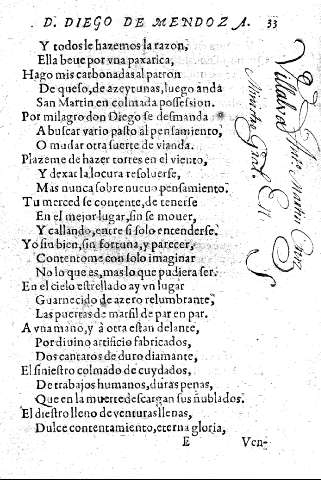 D. DIEGO DE MENDOZA. 33
Y todos le hazemos la razon,
Ella beue por vna paxarica,
Hago mis carbonadas al patron
De queso, de azeytunas, luego anda
San Martin en colmada possession.
Por milagro don Diego se desmanda
A buscar vario pasto al pensamiento,
O mudar otra suerte de vianda.
Plazeme de hazer torres en el viento,
Y dexar la locura resoluerse,
Mas nunca sobre nueuo pensamiento.
Tu merced se contente, de tenerse
En el mejor lugar, sin se mouer,
Y callando, entre si solo entenderse.
Yo sin bien, sin fortuna, y parecer,
Contentome con solo imaginar
No lo que es, mas lo que pudiera ser.
En el cielo estrellado ay vn lugar
Guarnecido de azero relumbrante,
Las puertas de marfil de par en par.
A vna mano, y à otra estan delante,
Por diuino artificio fabricados,
Dos cantaros de duro diamante,
El siniestro colmado de cuydados,
De trabajos humanos, duras penas,
Que en la muerte descargan sus ñublados.
El diestro lleno de venturas llenas,
Dulce contentamiento, eterna gloria,
E Ven-
Martin
Villalva